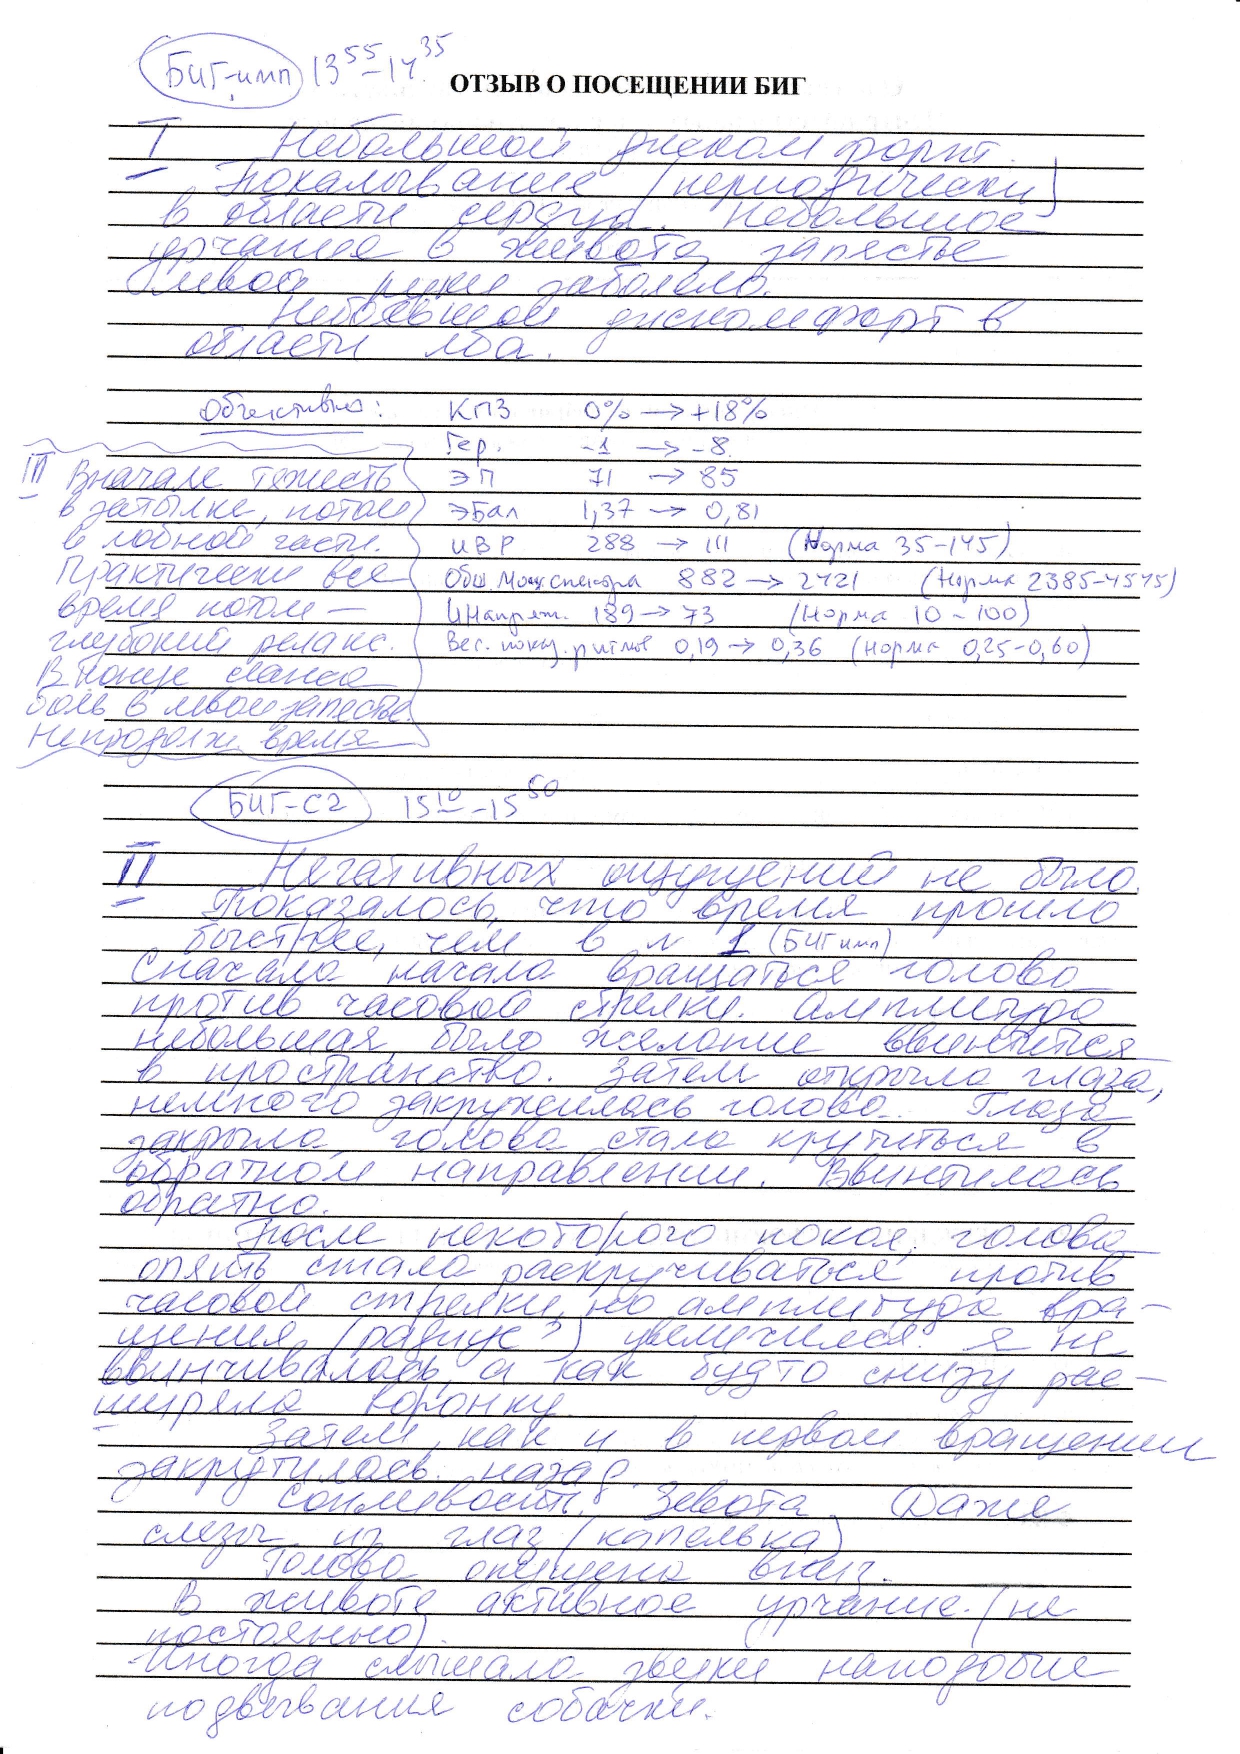 БИГ-имп 13⁵⁵-14³⁵
ОТЗЫВ О ПОСЕЩЕНИИ БИГ
I Небольшой дискомфорт.
Покалывание (периодически)
в области сердца. Небольшое
урчание в животе, запястье
левой руки заболело.
Небольшой дискомфорт в
области лба.
Объективно: КПЗ 0% → +18%
Гер. -1 → -8
ЭП 71 → 85
ЭБал 1,37 → 0,81
ИВР 288 → 111 (Норма 35-145)
Общ. Мощ. спектра 882 → 2421 (Норма 2385-4545)
ИНапряж. 189 → 73 (Норма 10-100)
Вег. показ. ритма 0,19 → 0,36 (норма 0,25-0,60)
III Вначале тяжесть
в затылке, потом
в лобной части.
Практически все
время потом —
глубокий релакс.
В конце сеанса
боль в левом запястье
непродолж. время
БИГ-С2 15¹⁰-15⁵⁰
II Негативных ощущений не было.
Показалось, что время прошло
быстрее, чем в № 1 (БИГ имп)
Сначала начала вращаться голова
против часовой стрелки. Амплитуда
небольшая, было желание ввинтиться
в пространство. Затем открыла глаза,
немного закружилась голова. Глаза
закрыла, голова стала крутиться в
обратном направлении. Ввинтилась
обратно.
После некоторого покоя, голова
опять стала раскручиваться против
часовой стрелки, но амплитуда вра-
щения (радиус?) увеличился. Я не
ввинчивалась, а как будто снизу рас-
ширяла воронку.
Затем, как и в первом вращении
закрутилась назад.
Сонливость. Зевота. Даже
слезы из глаз (капелька)
Голова опущена вниз.
В животе активное урчание (не
постоянно).
Иногда слышала звуки наподобие
подвывания собачки.